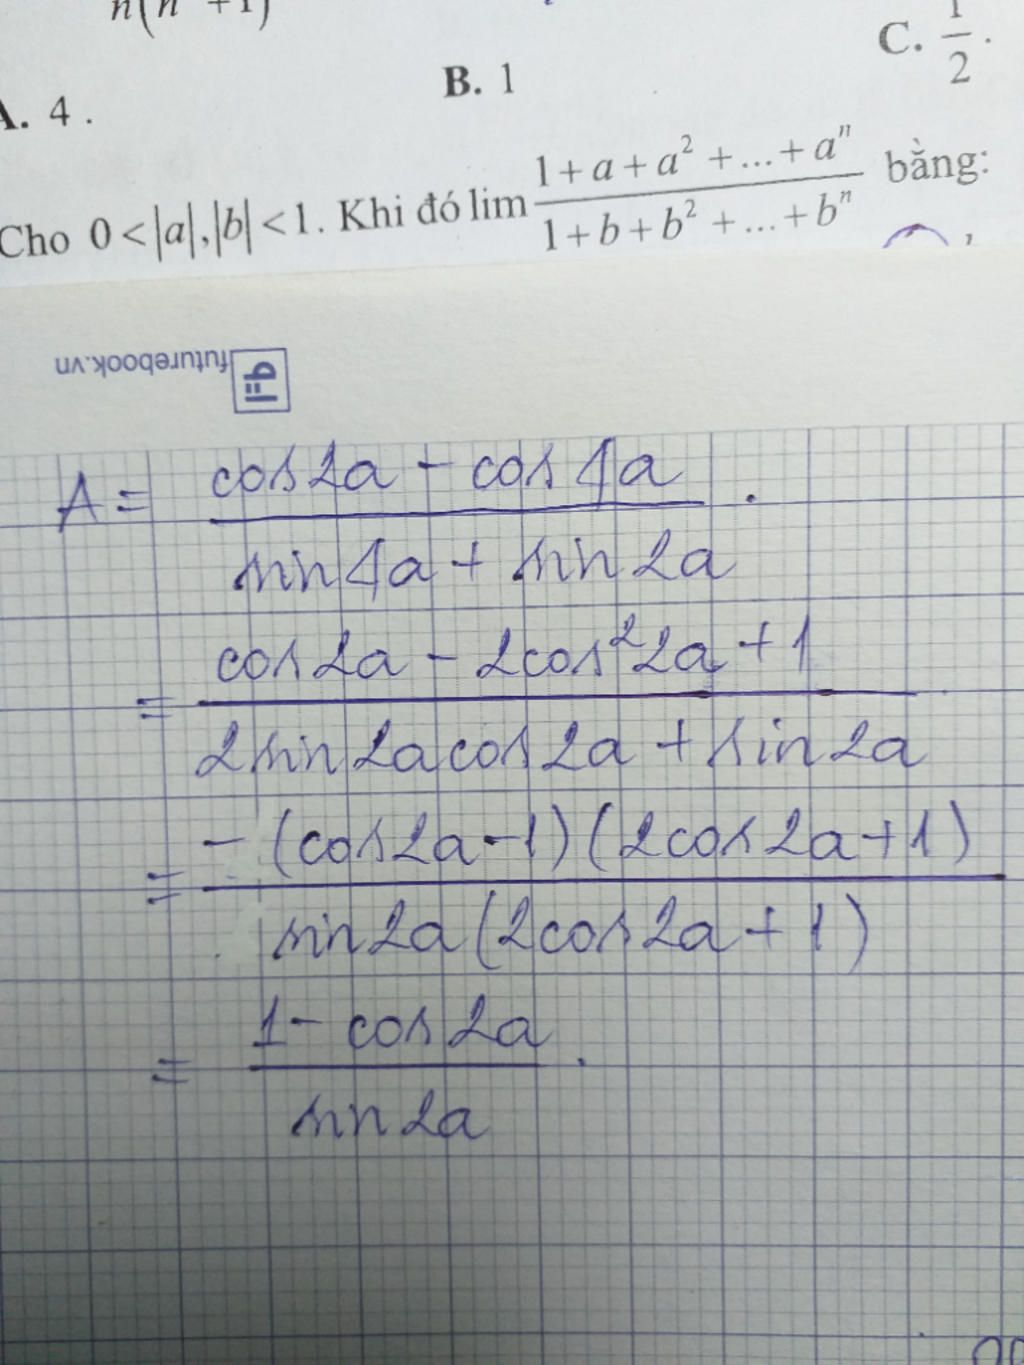 n(n + 1)
C. 1/2.
B. 1
A. 4.
Cho 0 < |a|, |b| < 1. Khi đó lim (1 + a + a² + ... + aⁿ)/(1 + b + b² + ... + bⁿ) bằng:
futurebook.vn
A = (cos2a - cos4a)/(sin4a + sin2a).
= (cos2a - 2cos²2a + 1)/(2sin2acos2a + sin2a)
= (-(cos2a - 1)(2cos2a + 1))/(sin2a(2cos2a + 1))
= (1 - cos2a)/(sin2a).